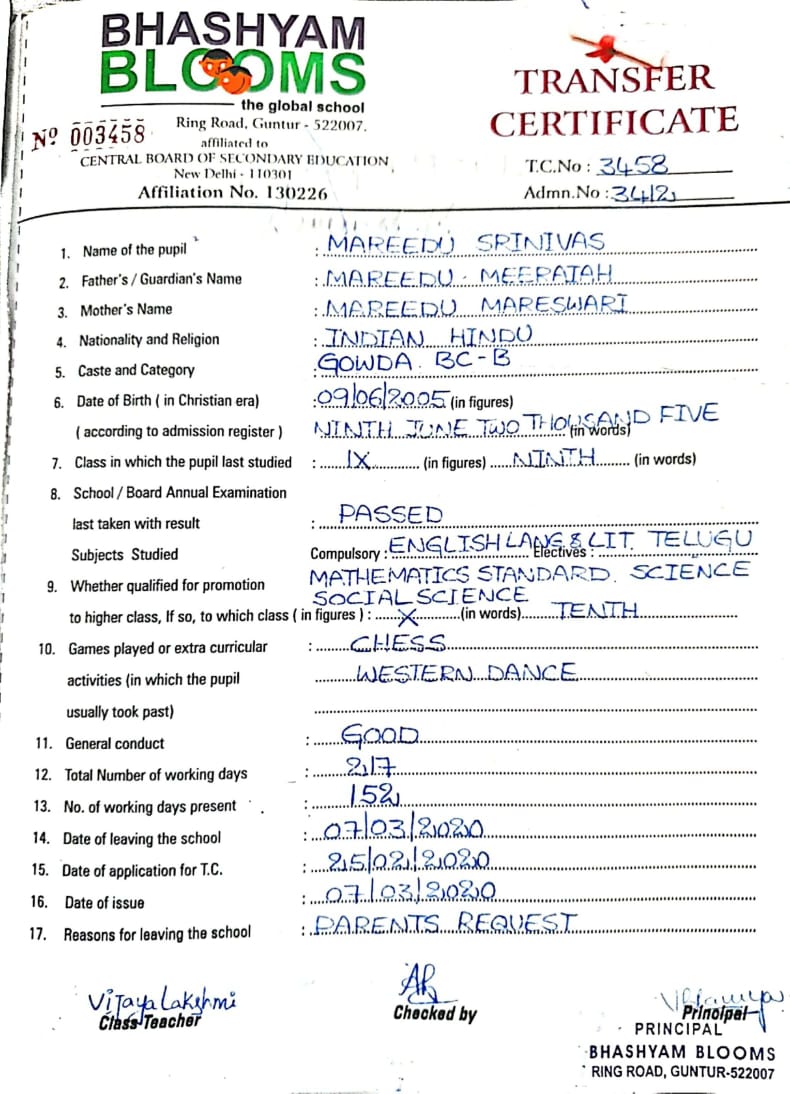 BHASHYAM
BLOOMS
the global school
Ring Road, Guntur - 522007.
affiliated to
CENTRAL BOARD OF SECONDARY EDUCATION
New Delhi - 110301
Affiliation No. 130226
Nº 003458
TRANSFER
CERTIFICATE
T.C.No : 3458
Admn.No : 3412
1. Name of the pupil : MAREEDU SRINIVAS
2. Father's / Guardian's Name : MAREEDU MEERAIAH
3. Mother's Name : MAREEDU MARESWARI
4. Nationality and Religion : INDIAN HINDU
5. Caste and Category : GOWDA. BC-B
6. Date of Birth ( in Christian era) : 09/06/2005 (in figures)
( according to admission register ) NINTH JUNE TWO THOUSAND FIVE (in words)
7. Class in which the pupil last studied : IX (in figures) NINTH (in words)
8. School / Board Annual Examination
last taken with result : PASSED
Subjects Studied Compulsory : ENGLISH LANG & LIT. TELUGU Electives :
MATHEMATICS STANDARD. SCIENCE
9. Whether qualified for promotion SOCIAL SCIENCE
to higher class, If so, to which class ( in figures ) : X (in words) TENTH
10. Games played or extra curricular : CHESS
activities (in which the pupil WESTERN DANCE
usually took past)
11. General conduct : GOOD
12. Total Number of working days : 217
13. No. of working days present : 152
14. Date of leaving the school : 07/03/2020
15. Date of application for T.C. : 25/02/2020
16. Date of issue : 07/03/2020
17. Reasons for leaving the school : PARENTS REQUEST
Vijaya Lakshmi
Class Teacher
Checked by
Principal
PRINCIPAL
BHASHYAM BLOOMS
RING ROAD, GUNTUR-522007